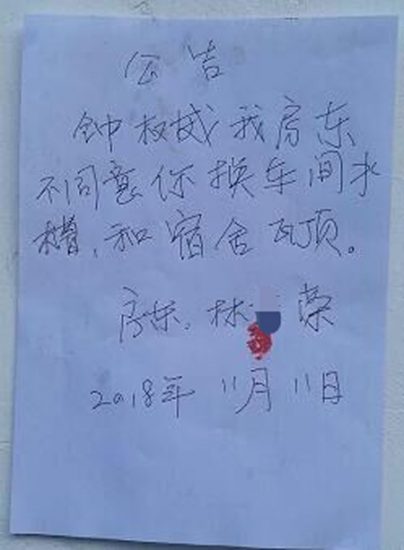 公告
钟权威我房东
不同意你换车间水
槽,和宿舍瓦顶。
房东,林 荣
2018年11月11日